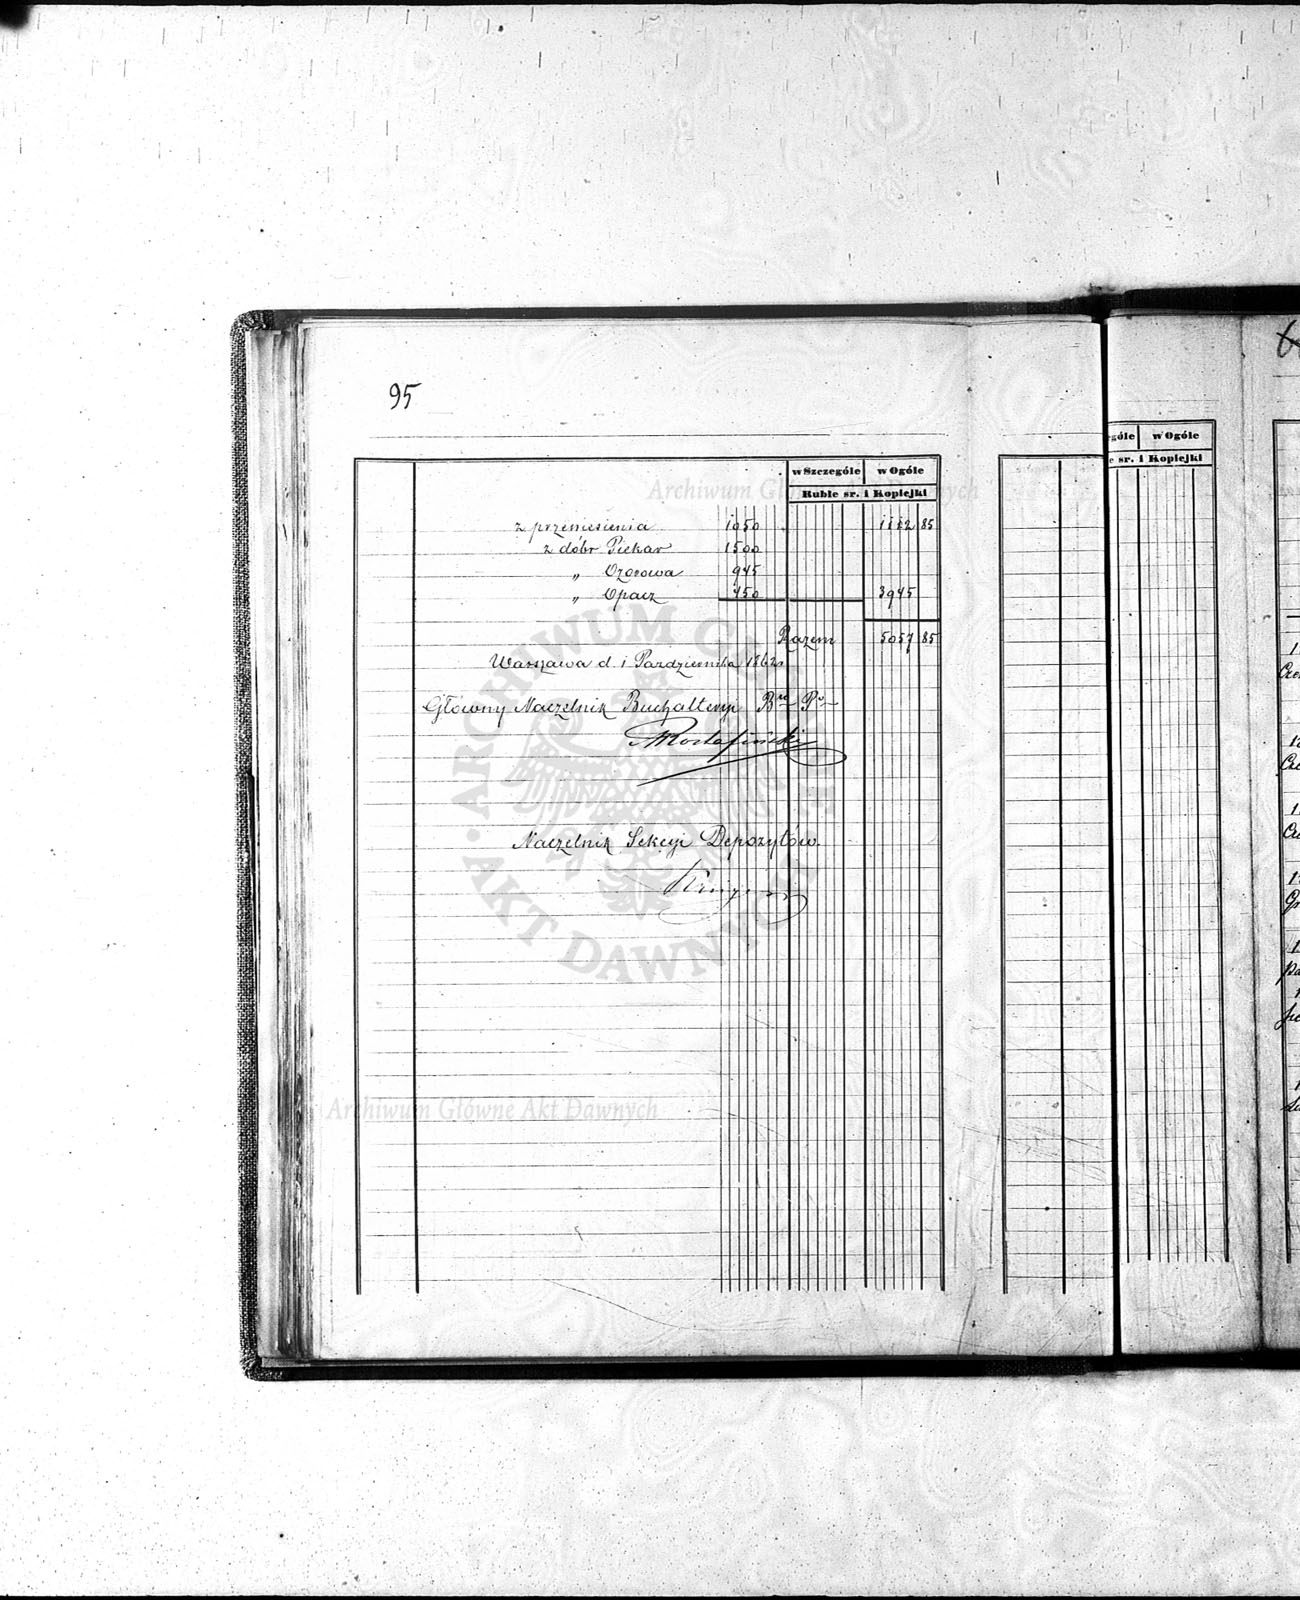 95
w Szczególe w Ogóle
Ruble sr. i Kopiejki
z przeniesienia 1050 1112 85
z dóbr Piekar 1500
„ Ozorowa 945
„ Opacz 450 3945
Razem 5057 85
Warszawa d. 1 Pazdziernika 1862 r.
Główny Naczelnik Buchalteryi
Naczelnik Sekcyi Depozytów.
w Ogóle
sr. i Kopiejki
Archiwum Główne Akt Dawnych
ARCHIWUM GŁÓWNE AKT DAWNYCH
Archiwum Główne Akt Dawnych